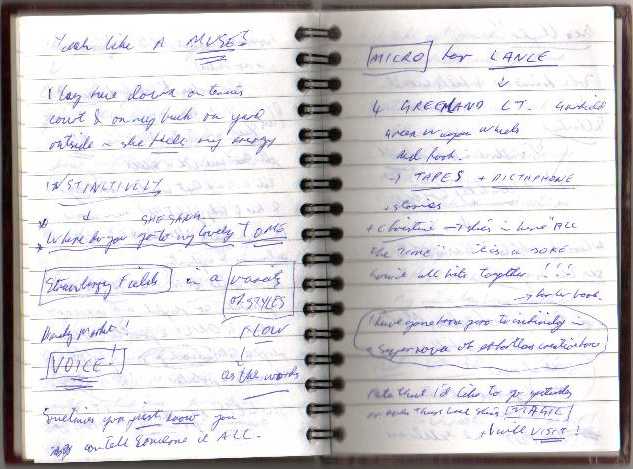 Yeah like A MUSES
I lay here down on tennis
court & on my back on yard
outside ~ she feels my energy
INSTINCTIVELY
SHE SANG
Where do you go to my lovely TO ME
Strawberry Fields in a variety
of STYLES
Handy Market! FLOW
VOICE! as the words
Sometimes you just know you
can tell someone it ALL.
MICRO for LANCE
4 GREENLAND CT.
Green wagon wheels
Red book.
→ TAPES + DICTAPHONE
+ stories
+ Christine → she's in here "ALL
the TIME" it is a JOKE
how it all fits together !!!
→ for book.
I have gone from zero to infinity in
a Supernova of effortless creations
Note that I'd like to go yesterday
MAGIC
+ I will VISIT!